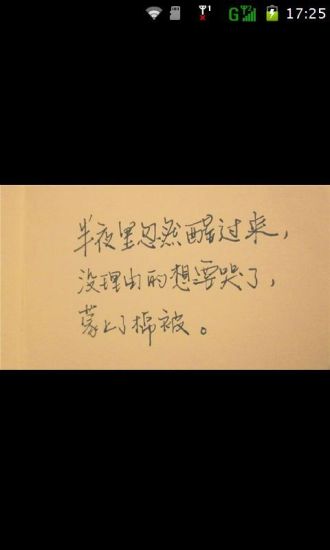 17:25
半夜里忽然醒过来，
没理由的想要哭了，
蒙上了棉被。